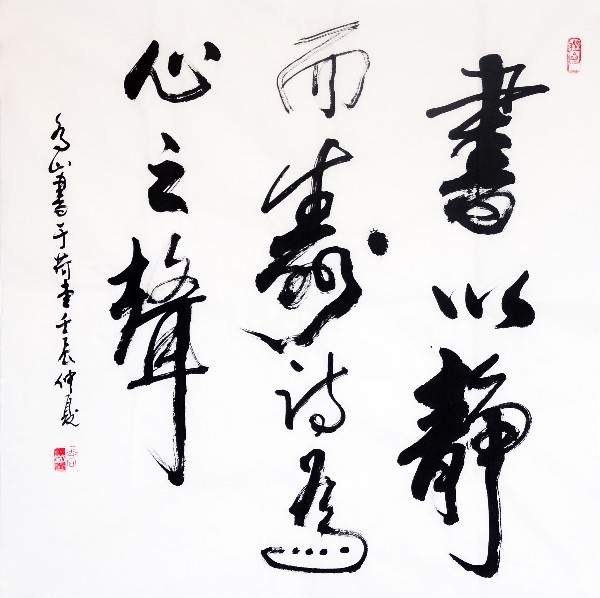 書以静
而壽詩為
心之聲
山書于荷堂壬辰仲夏